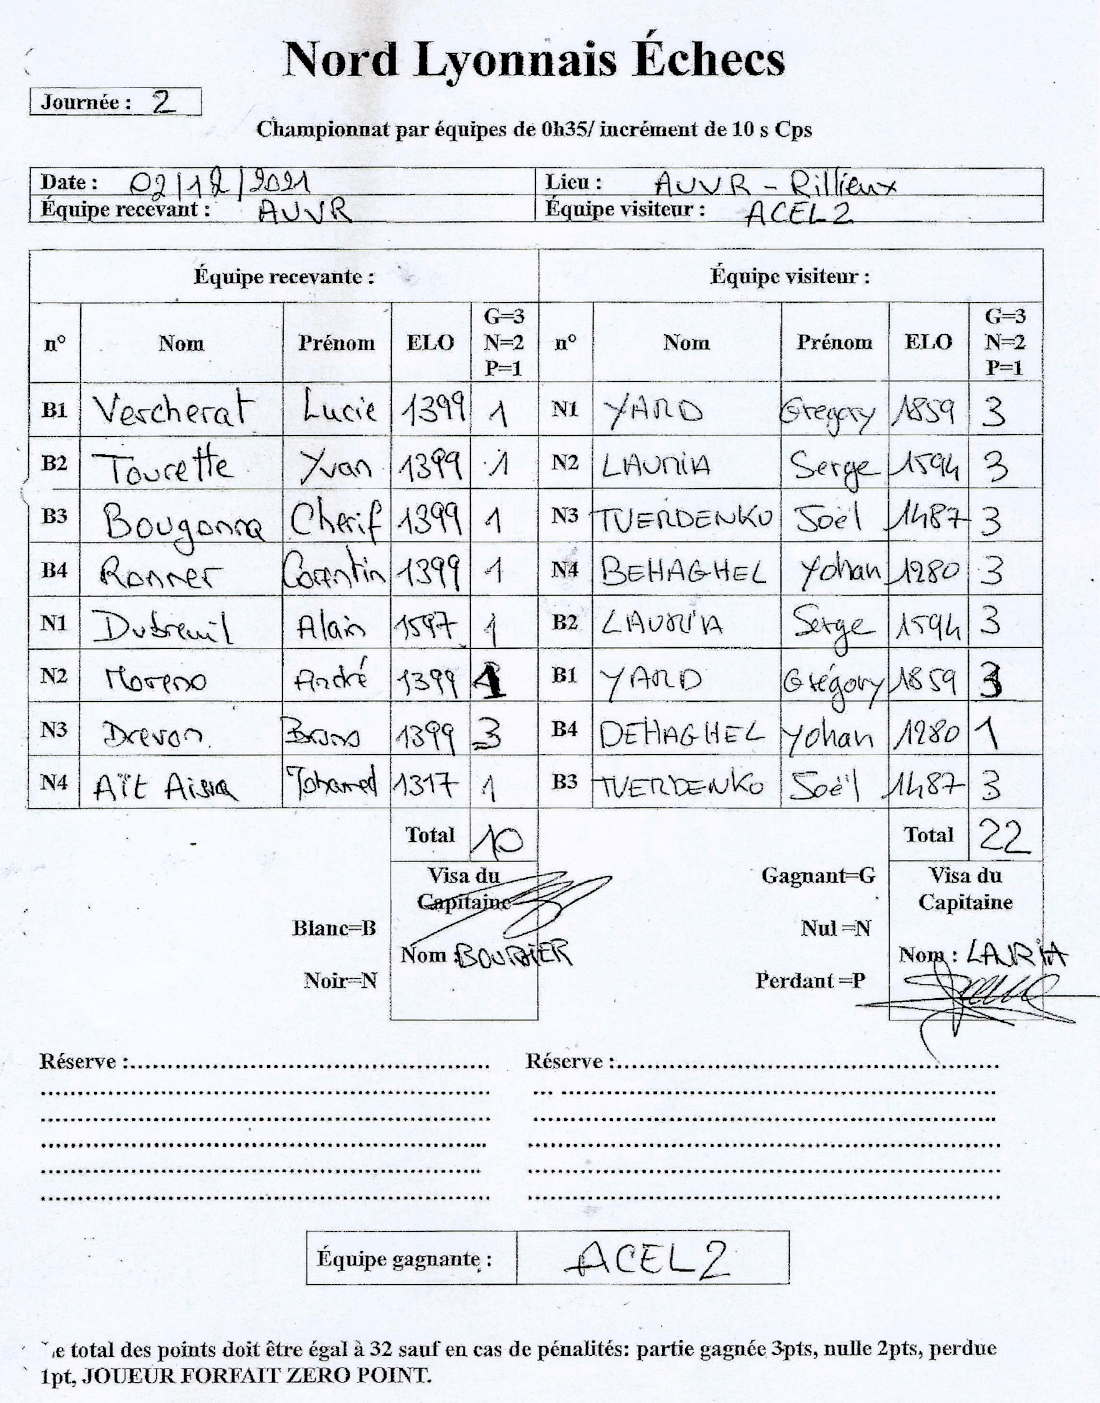 Nord Lyonnais Échecs
Journée : 2
Championnat par équipes de 0h35/ incrément de 10 s Cps
Date : 02/12/2021 Lieu : AUVR - Rillieux
Équipe recevant : AUVR Équipe visiteur : ACEL2
Équipe recevante : Équipe visiteur :
n° Nom Prénom ELO G=3 N=2 P=1 n° Nom Prénom ELO G=3 N=2 P=1
B1 Vercherat Lucie 1399 1 N1 YARD Gregory 1859 3
B2 Tourette Yvan 1399 1 N2 LAURIA Serge 1594 3
B3 Bouganna Cherif 1399 1 N3 TVERDENKO Joël 1487 3
B4 Ronner Corentin 1399 1 N4 BEHAGHEL Yohan 1280 3
N1 Dubreuil Alain 1597 1 B2 LAURIA Serge 1594 3
N2 Moreno André 1399 1 B1 YARD Grégory 1859 3
N3 Drevon Bruno 1399 3 B4 DEHAGHEL Yohan 1280 1
N4 Aït Aissa Mohamed 1317 1 B3 TVERDENKO Joël 1487 3
Total 10 Total 22
Visa du Capitaine Gagnant=G Visa du Capitaine
Blanc=B Nul =N
Nom : Nom : LAURIA
Noir=N Perdant =P
Réserve : Réserve :
Équipe gagnante : ACEL2
e total des points doit être égal à 32 sauf en cas de pénalités: partie gagnée 3pts, nulle 2pts, perdue
1pt, JOUEUR FORFAIT ZERO POINT.